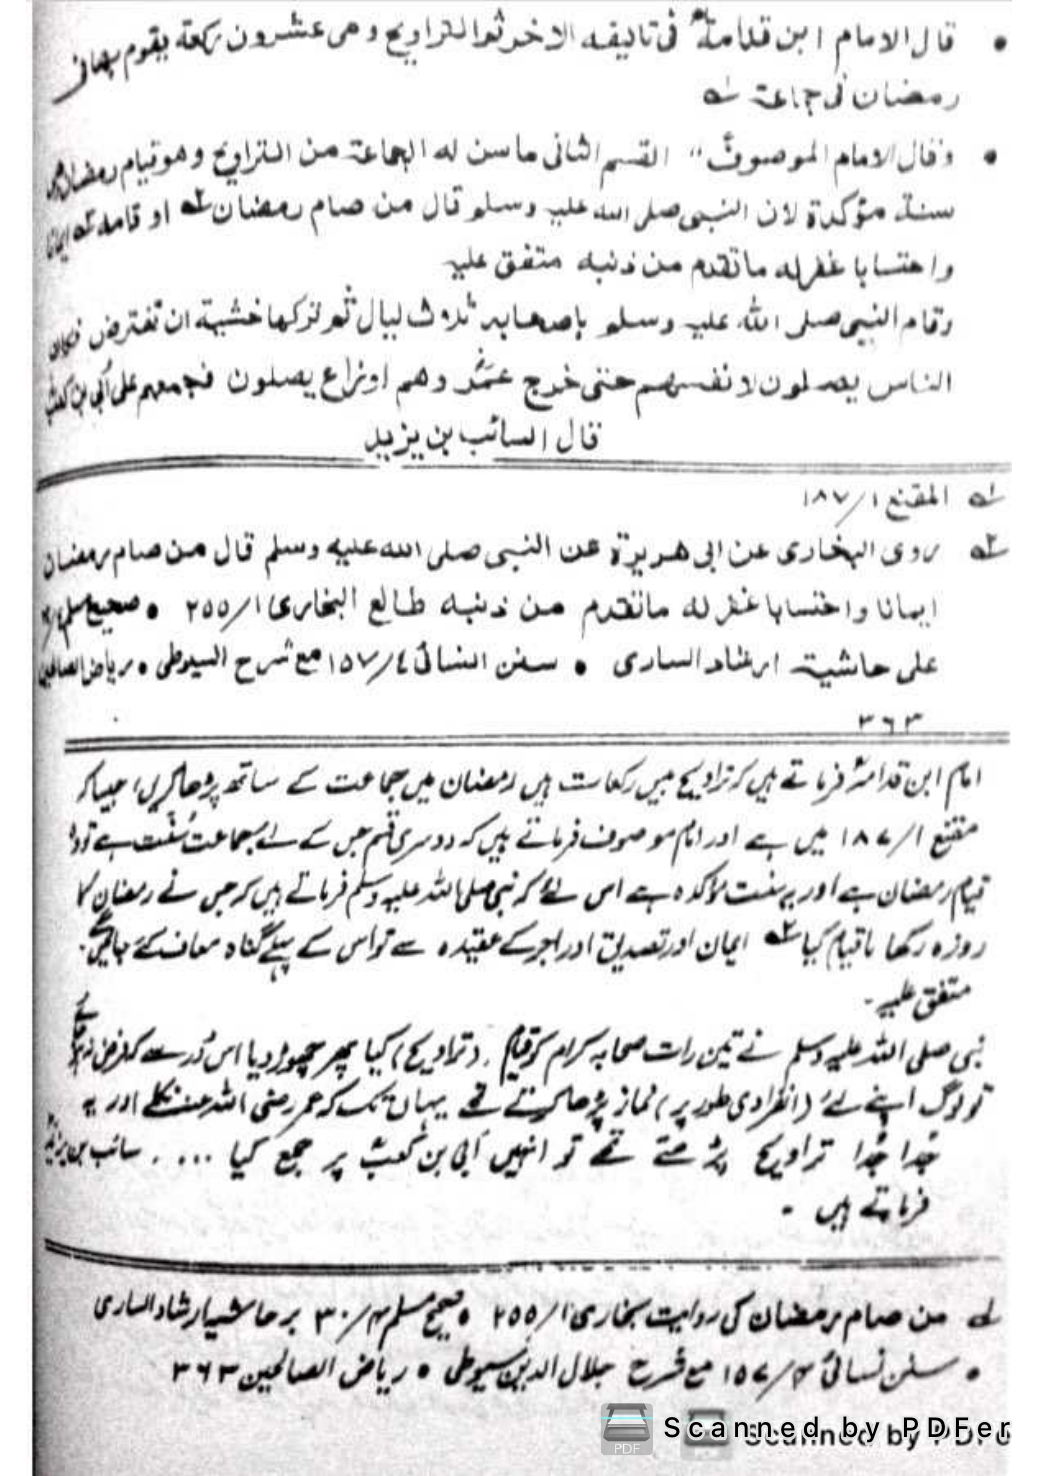 • قال الامام ابن قدامة فی تالیفہ الاخر ثم التراویح وھی عشرون رکعۃ یقوم بھا فی
رمضان فی جماعۃ لہ
• وقال الامام الموصوف" القسم الثانی ماسن لہ الجماعۃ من التراویح وھو قیام رمضان
سنۃ مؤکدۃ لان النبی صلی اللہ علیہ وسلم قال من صام رمضان او قامہ ایمانا
واحتسابا غفرلہ ماتقدم من ذنبہ متفق علیہ
وقام النبی صلی اللہ علیہ وسلم باصحابہ ثلاث لیال ثم ترکھا خشیۃ ان تفترض فکان
الناس یصلون لانفسھم حتی خرج عمر وھم اوزاع یصلون فجمعھم علی ابی بن کعب
قال السائب بن یزید
المقنع ١/١٨٧
روی البخاری عن ابی ھریرۃ عن النبی صلی اللہ علیہ وسلم قال من صام رمضان
ایمانا واحتسابا غفرلہ ماتقدم من ذنبہ طالع البخاری ١/٢٥٥ • صحیح مسلم
علی حاشیۃ ارشاد الساری • سنن النسائی ٤/١٥٧ مع شرح السیوطی • ریاض الصالحین
٣٦٣
امام ابن قدامہ فرماتے ہیں کہ تراویح بیس رکعات ہیں رمضان میں جماعت کے ساتھ پڑھا کریں، جیسا کہ
مقنع ۱/۱۸۷ میں ہے اور امام موصوف فرماتے ہیں کہ دوسری قسم جس کے لئے جماعت سنت ہے تو وہ
قیام رمضان ہے اور یہ سنت مؤکدہ ہے اس لئے کہ نبی صلی اللہ علیہ وسلم فرماتے ہیں کہ جس نے رمضان کا
روزہ رکھا یا قیام کیا ایمان اور تصدیق اور اجر کے عقیدہ سے تو اس کے پہلے گناہ معاف کئے جائیں گے۔
متفق علیہ۔
نبی صلی اللہ علیہ وسلم نے تین رات صحابہ کرام کو قیام (تراویح) کیا پھر چھوڑ دیا اس ڈر سے کہ فرض نہ ہو جائے
تو لوگ اپنے لئے (انفرادی طور پر) نماز پڑھا کرتے تھے یہاں تک کہ عمر رضی اللہ عنہ نکلے اور یہ
جُدا جُدا تراویح پڑھتے تھے تو انہیں اُبی بن کعب پر جمع کیا .... سائب بن یزید
فرماتے ہیں۔
لہ من صام رمضان کی روایت بخاری ۱/۲۵۵ • صحیح مسلم ۴/۳۰ بر حاشیہ ارشاد الساری
• سنن نسائی ۴/۱۵۷ مع شرح جلال الدین سیوطی • ریاض الصالحین ۳۶۳
PDF Scanned by PDFer
Scanned by PDFe